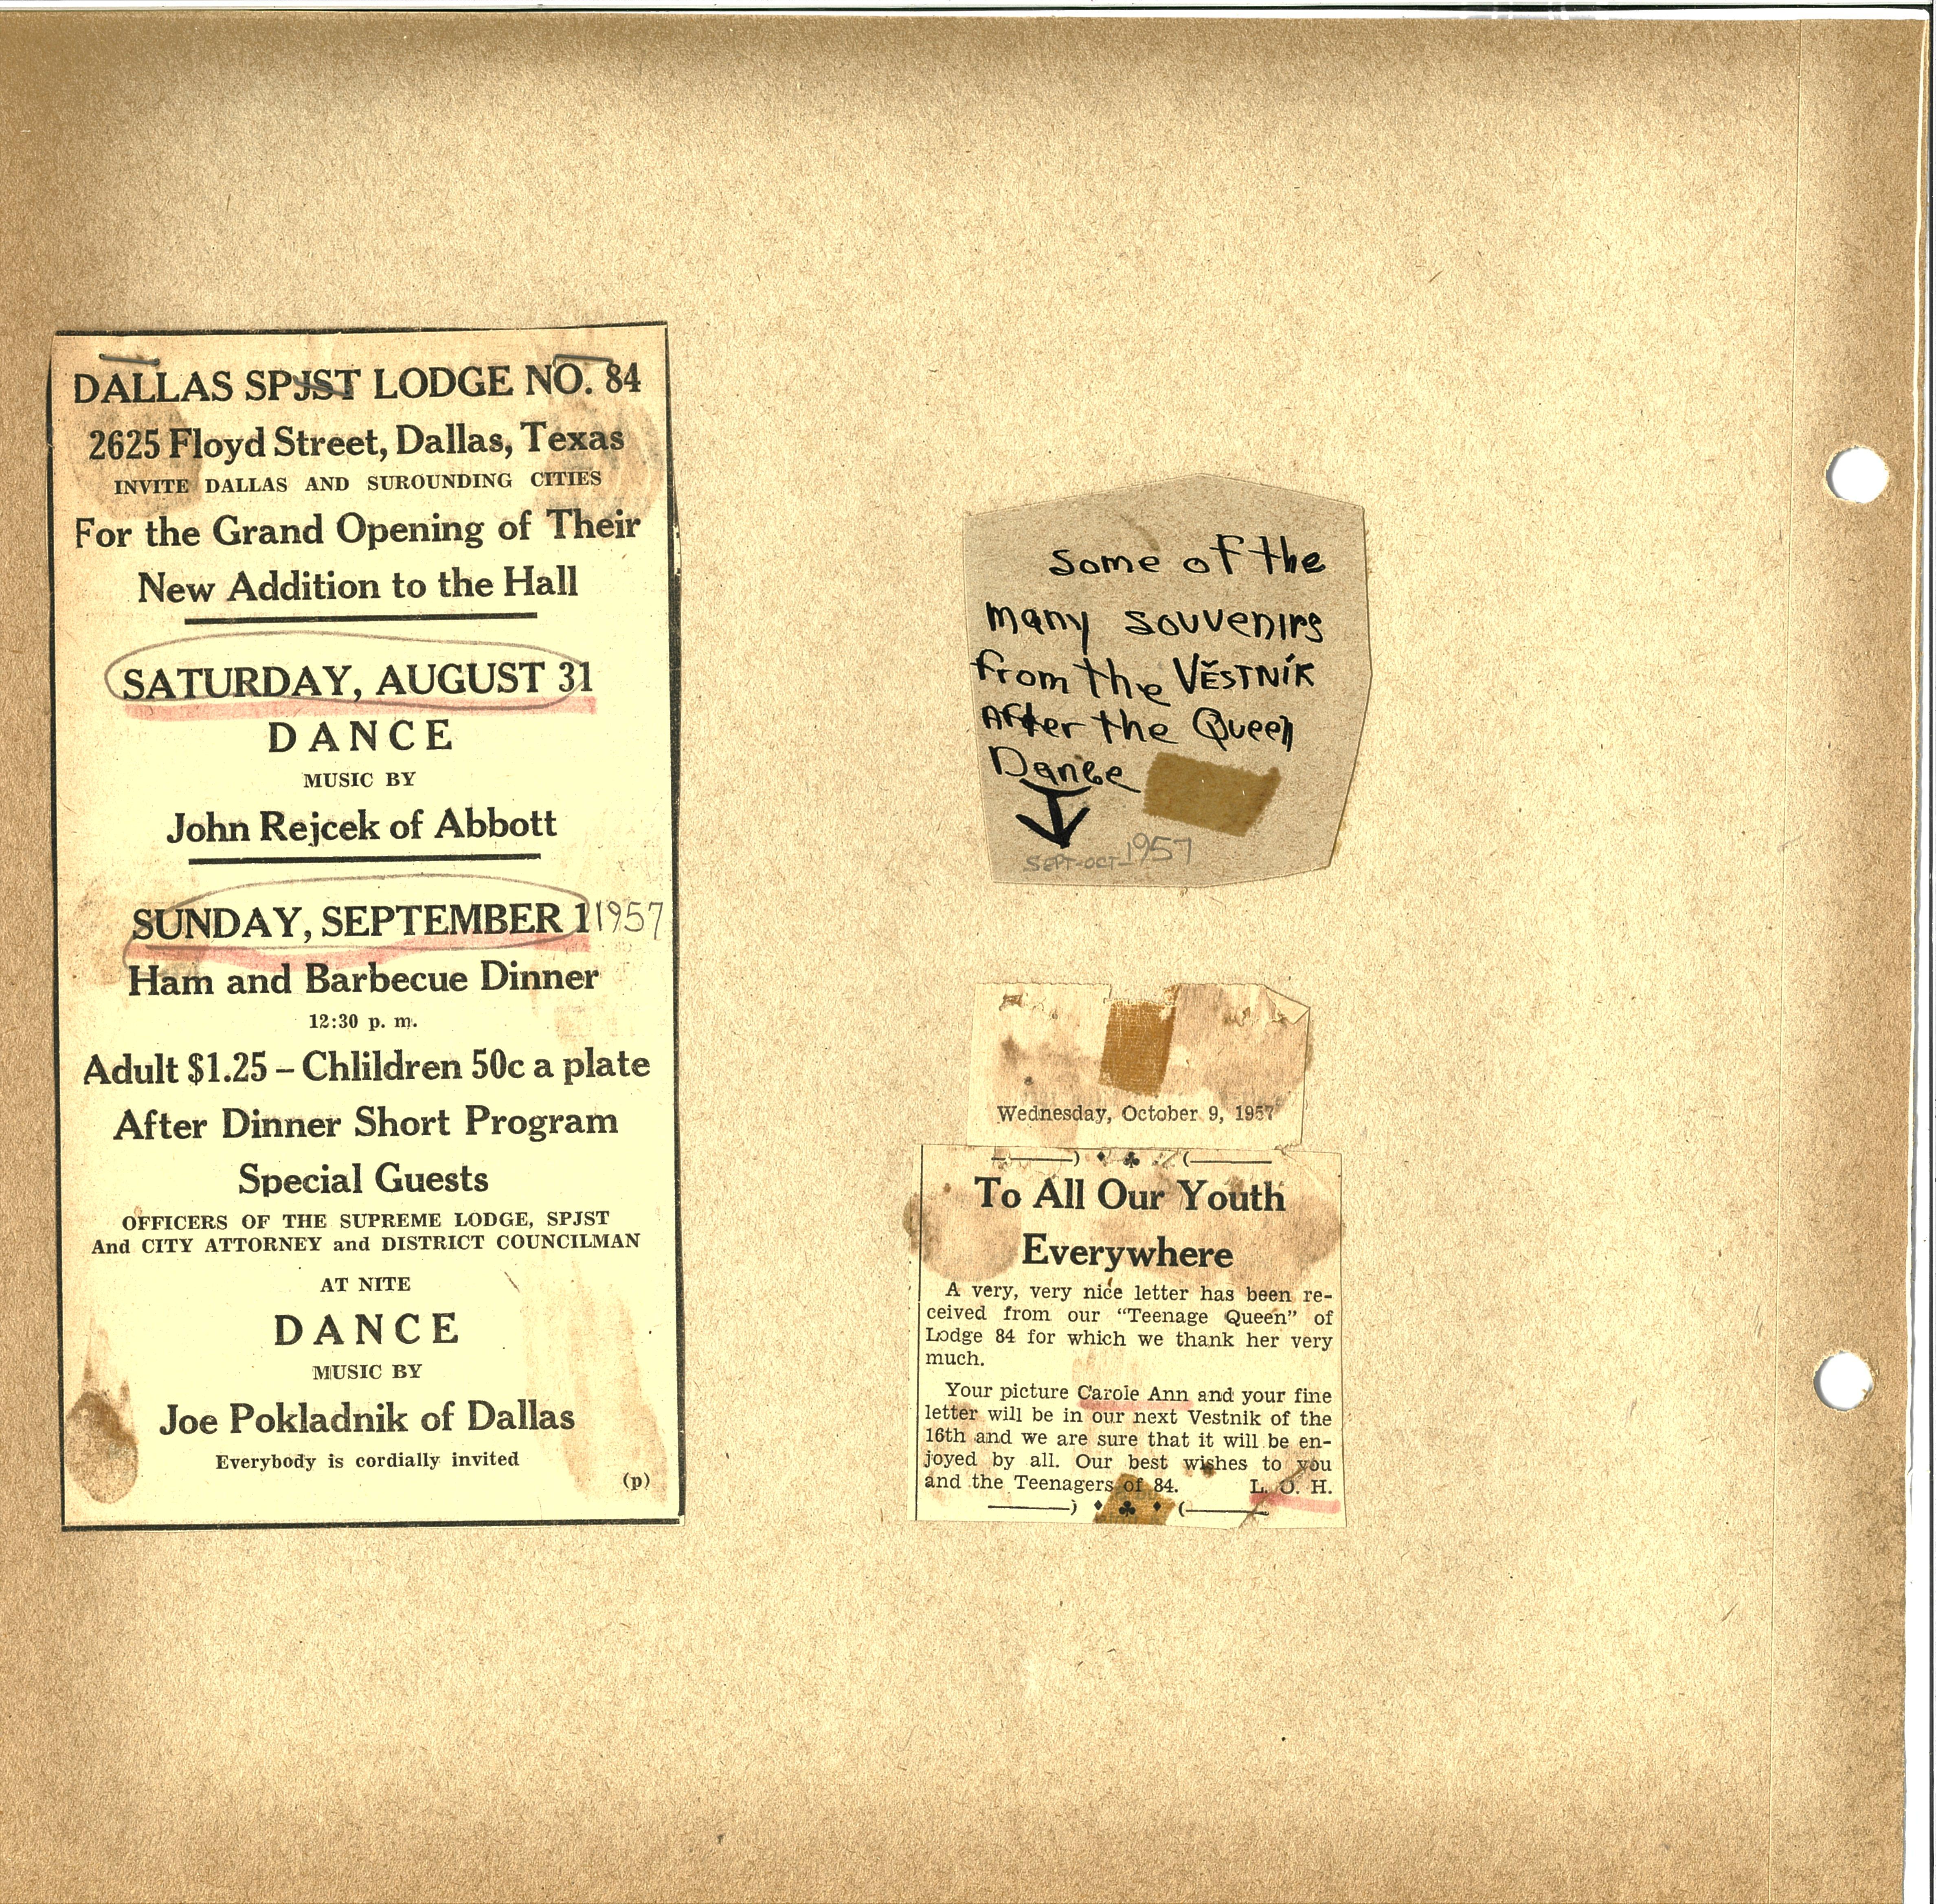 DALLAS SPJST LODGE NO. 84
2625 Floyd Street, Dallas, Texas
INVITE DALLAS AND SUROUNDING CITIES
For the Grand Opening of Their
New Addition to the Hall
SATURDAY, AUGUST 31
DANCE
MUSIC BY
John Rejcek of Abbott
SUNDAY, SEPTEMBER 1 1957
Ham and Barbecue Dinner
12:30 p. m.
Adult $1.25 – Chlildren 50c a plate
After Dinner Short Program
Special Guests
OFFICERS OF THE SUPREME LODGE, SPJST
And CITY ATTORNEY and DISTRICT COUNCILMAN
AT NITE
DANCE
MUSIC BY
Joe Pokladnik of Dallas
Everybody is cordially invited
(p)
some of the
many souvenirs
from the VĚSTNÍK
After the Queen
Dance
SEPT-OCT-1957
Wednesday, October 9, 1957
To All Our Youth
Everywhere
A very, very nice letter has been re-
ceived from our “Teenage Queen” of
Lodge 84 for which we thank her very
much.
Your picture Carole Ann and your fine
letter will be in our next Vestnik of the
16th and we are sure that it will be en-
joyed by all. Our best wishes to you
and the Teenagers of 84. L. O. H.